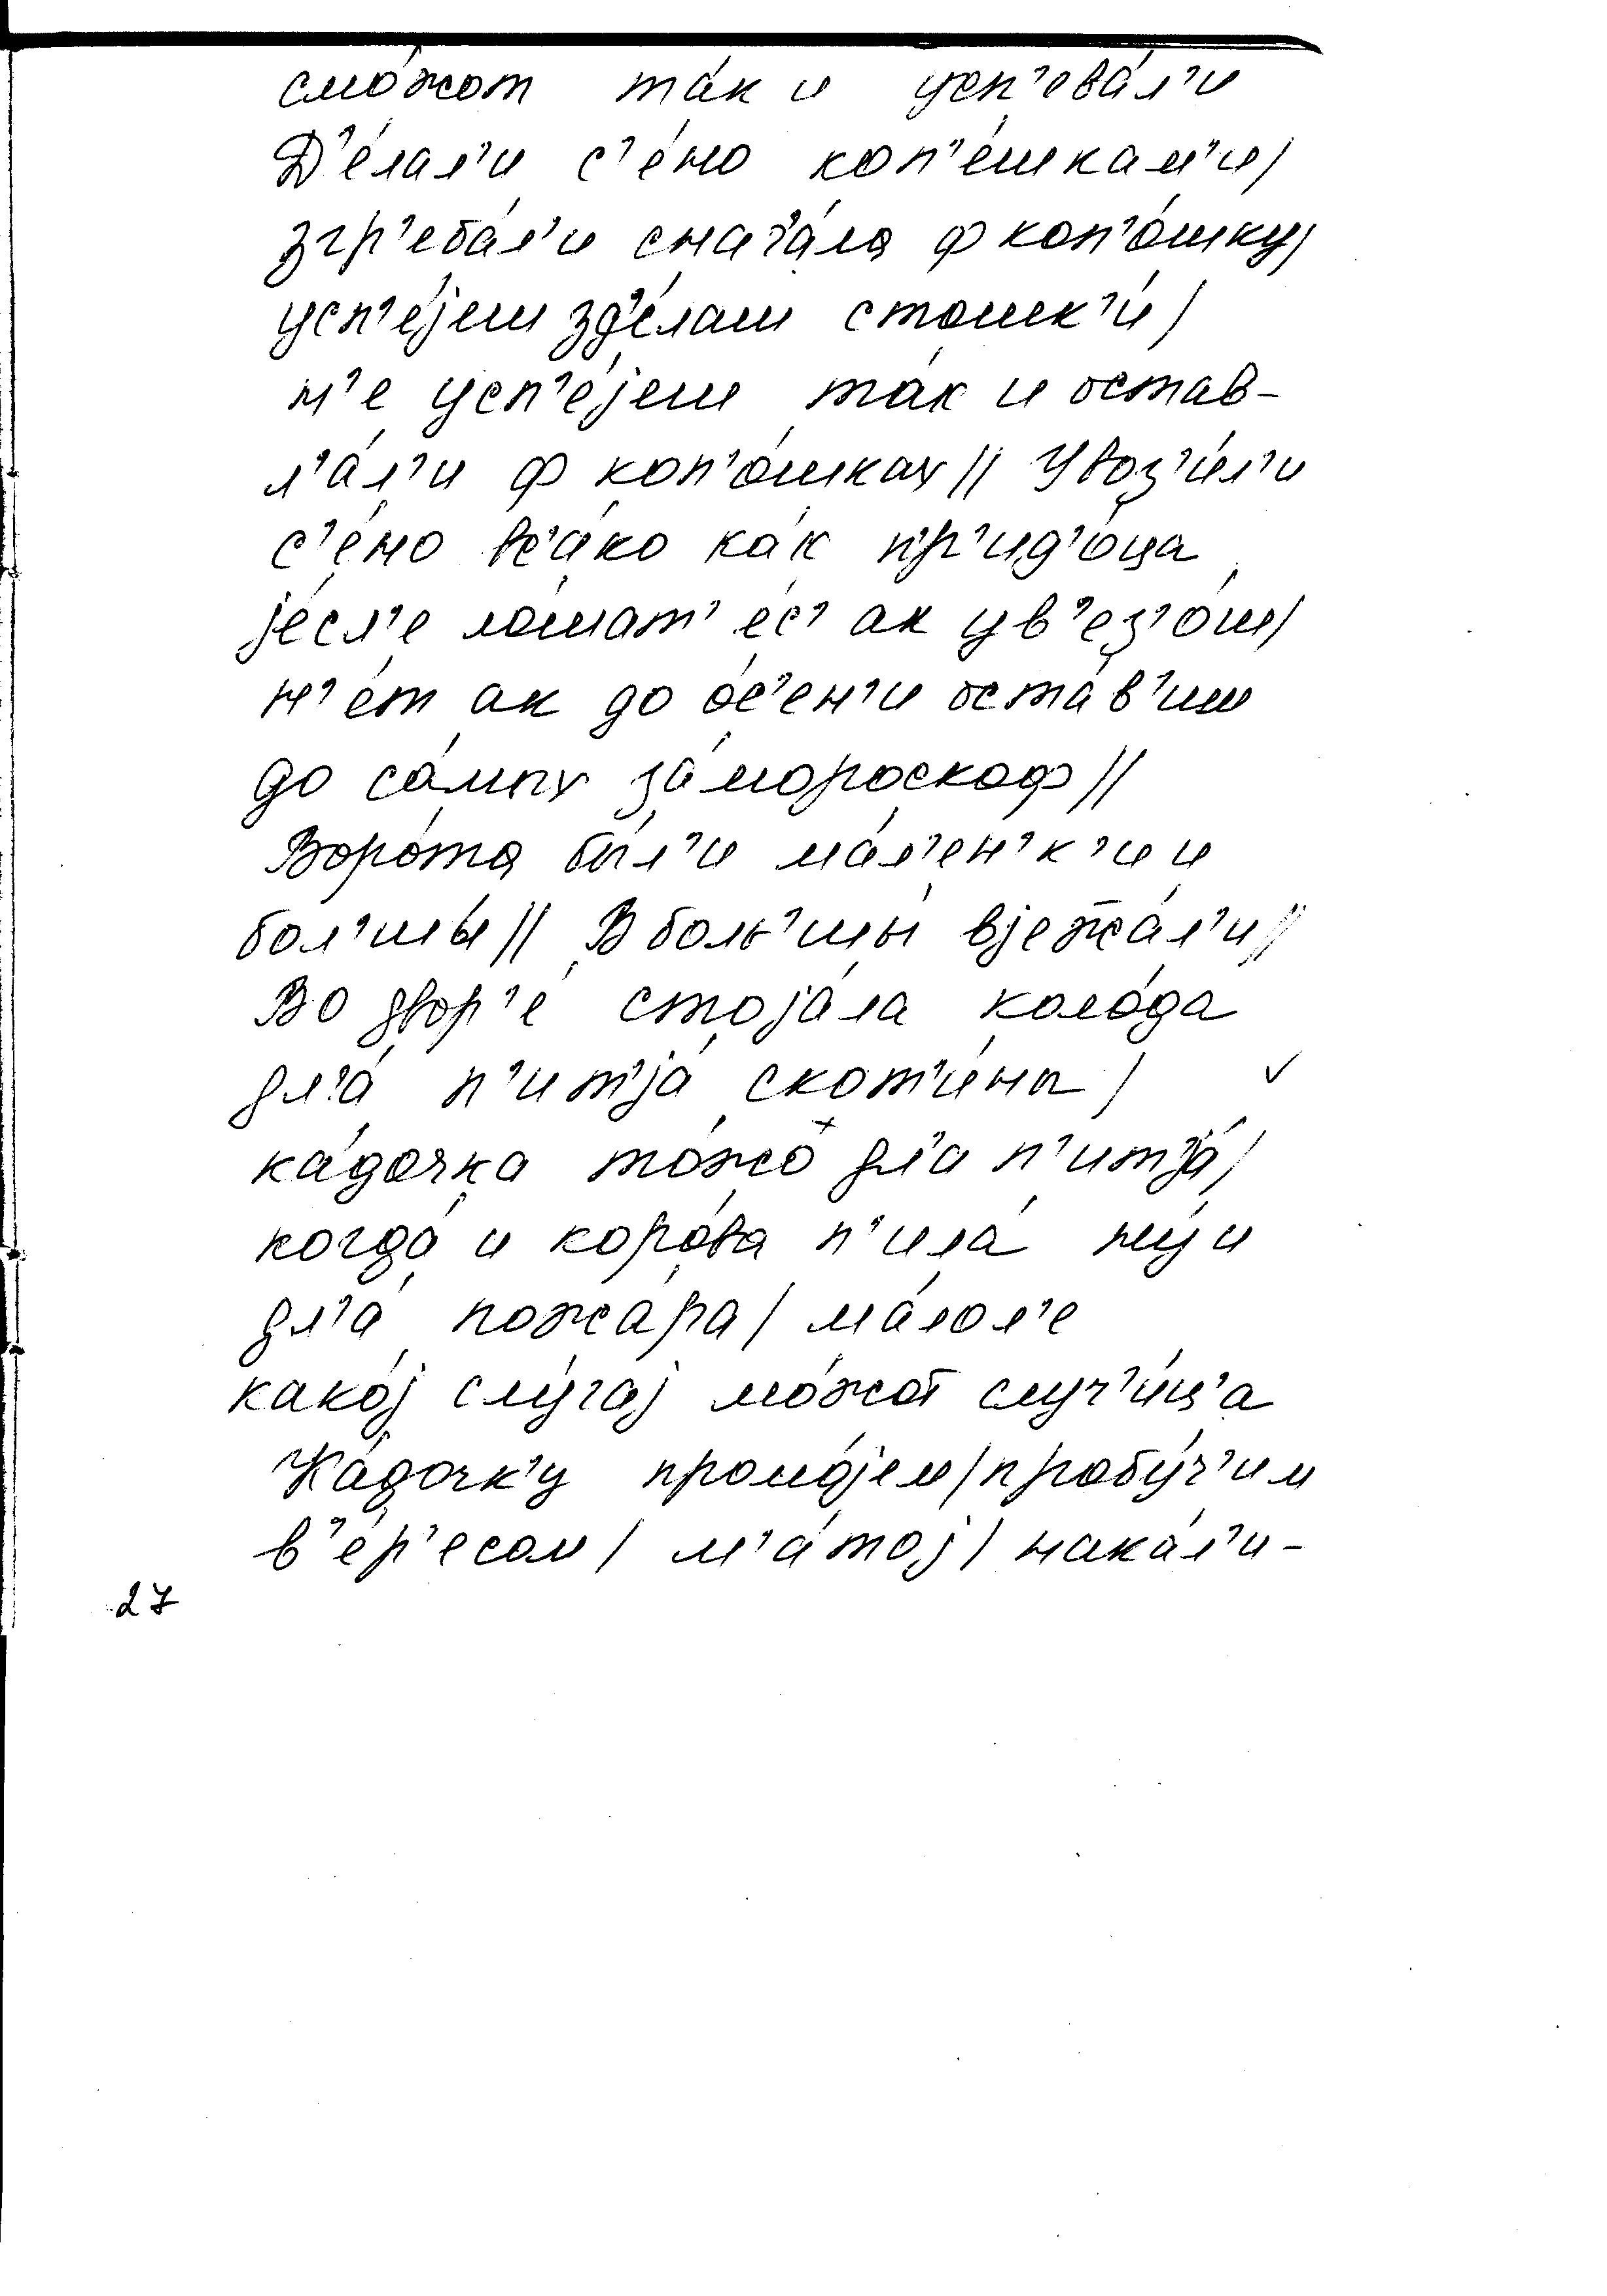 смо́жот та́к и усп'ева́л'и
Д'е́лал'и с'е́но коп'е́шкам'и/
згр'еба́л'и снач'а́ла ф коп'о́шку/
усп'е́јеш зд'е́лаш стошк'и́/
н'е усп'е́јеш та́к и остав-
л'а́л'и ф коп'о́шках// Увоз'и́л'и
с'е́но вс'а́ко ка́к пр'ид'о́ца
је́сл'е ло́шат' е́с' ак ув'ез'о́ш/
н'е́т ак до о́с'ен'и оста́в'иш
до са́мых за́мороскоф//
Воро́та бы́л'и ма́л'ен'к'и и
бол'шы́// В больʼшы́ вјежа́л'и//
Во двор'е́ стоја́ла коло́да
дл'а́ п'ит'ја́ скот'и́ны/
ка́дочка то́жо дл'а п'ит'ја́/
когда́ и коро́ва п'ила́ ну́ и
дл'а́ пожа́ра/ ма́лол'е
како́ј слу́чај мо́жот случ'и́ц'а
Ка́дочк'у промо́јем/пробу́ч'им
в'е́р'есом/ м'а́тој/ нака́л'и-
27